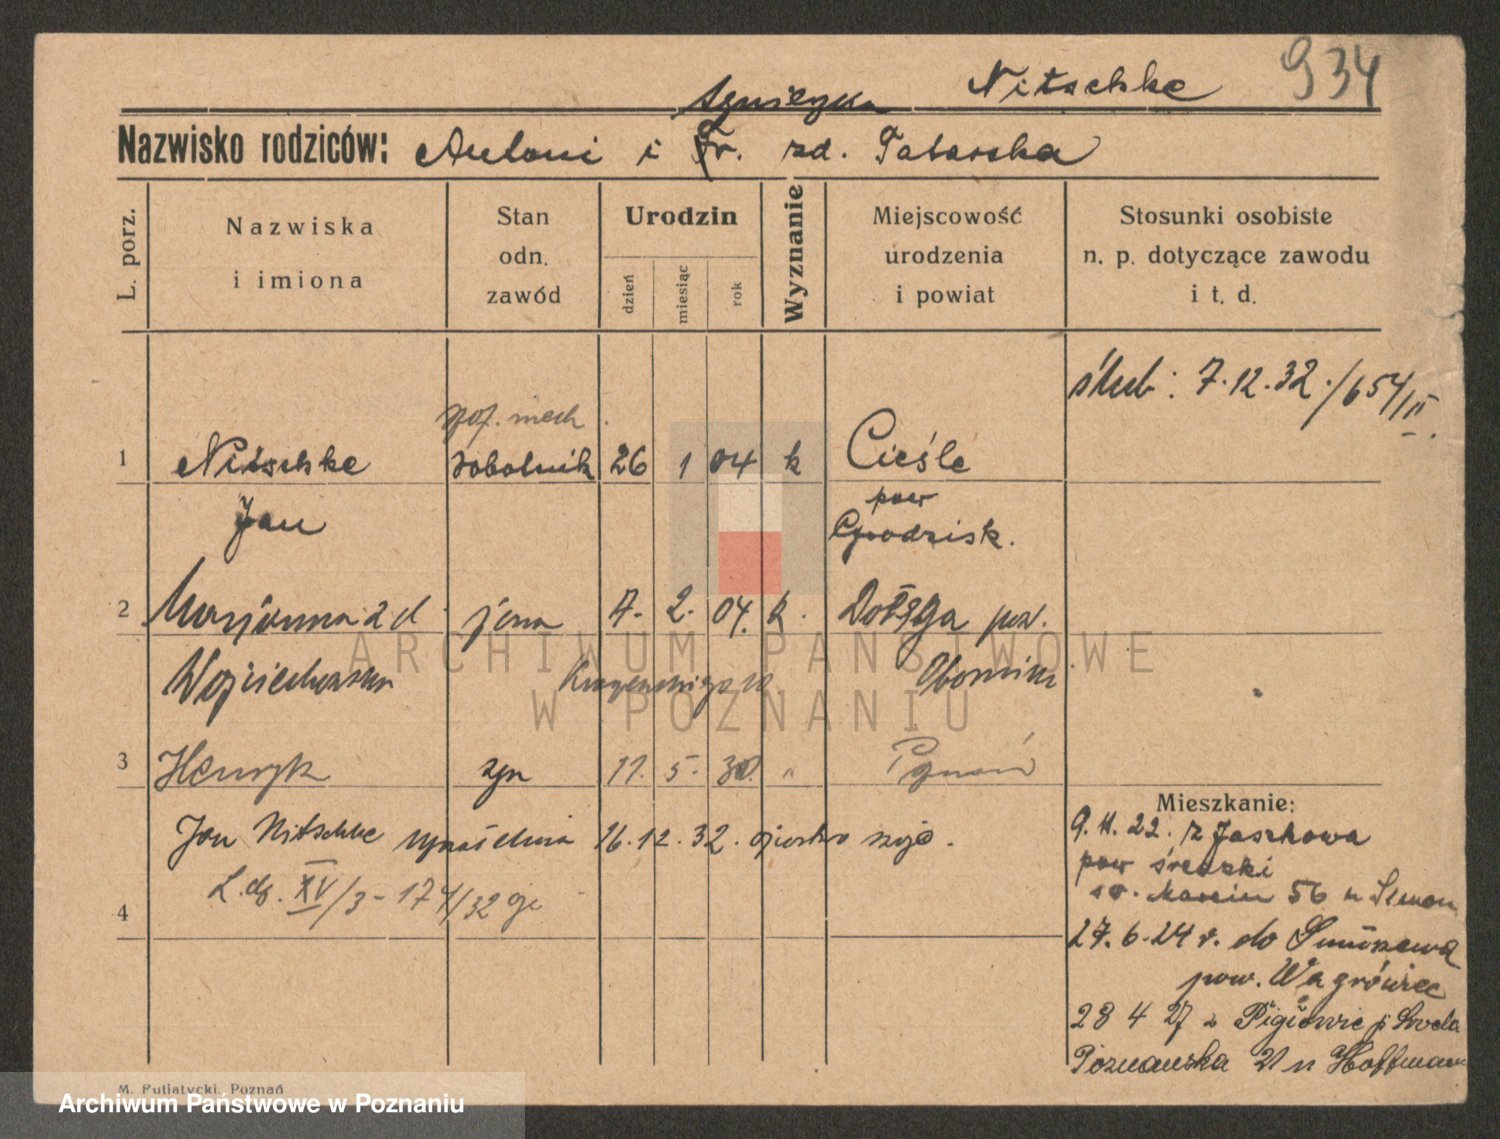 Nitschke 934
Agnieszka
Nazwisko rodziców: Antoni i Fr. zd. Tatarska
L. porz.
Nazwiska
i imiona
Stan
odn.
zawód
Urodzin
dzień
miesiąc
rok
Wyznanie
Miejscowość
urodzenia
i powiat
Stosunki osobiste
n. p. dotyczące zawodu
i t. d.
ślub: 7.12.32./654/III.
mech
1 Nitschke robotnik 26 1 04 k Cieśle
pow
Jan Grodzisk.
2 Marjanna zd żona 7. 2. 04. k. Dołęga pow.
Wojciechowska Oborniki
3 Henryk syn 11. 5. 30. " Poznań
Mieszkanie:
Jan Nitschke 16.12.32. ojcostwo swoje.
L.dz. XV/3-174/32
4
9.11.22. z Jaszkowa
pow średzki
św. Marcin 56
27.6.24 r. do
pow. Wągrówiec
28 4 27 z Środa
Poznańska 21 u Hoffmann
M. Putiatycki, Poznań
ARCHIWUM PAŃSTWOWE
W POZNANIU
Archiwum Państwowe w Poznaniu